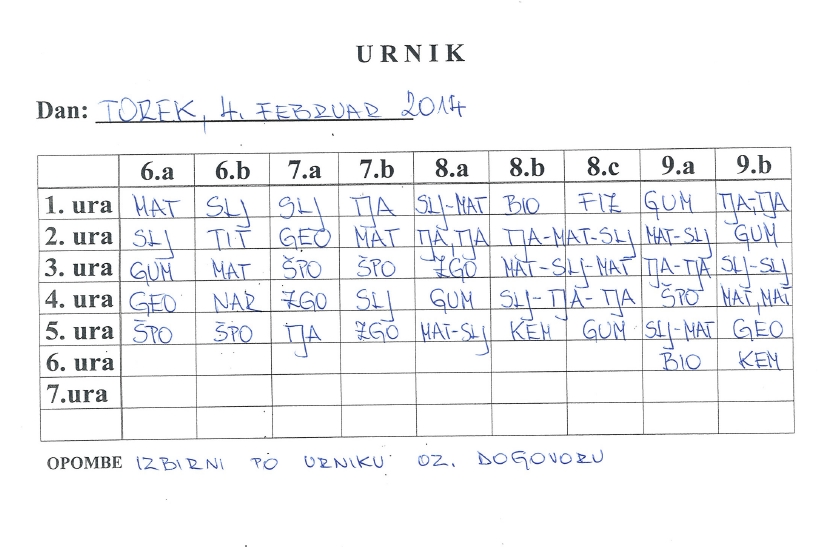 URNIK
Dan: TOREK, 4. FEBRUAR 2014
6.a 6.b 7.a 7.b 8.a 8.b 8.c 9.a 9.b
1. ura MAT SLJ SLJ TJA SLJ-MAT BIO FIZ GUM TJA-TJA
2. ura SLJ TIT GEO MAT TJA,TJA TJA-MAT-SLJ MAT-SLJ GUM
3. ura GUM MAT ŠPO ŠPO ZGO MAT-SLJ-MAT TJA-TJA SLJ-SLJ
4. ura GEO NAR ZGO SLJ GUM SLJ-TJA-TJA ŠPO MAT,MAT
5. ura ŠPO ŠPO TJA ZGO MAT-SLJ KEM GUM SLJ-MAT GEO
6. ura BIO KEM
7.ura
OPOMBE IZBIRNI PO URNIKU OZ. DOGOVORU